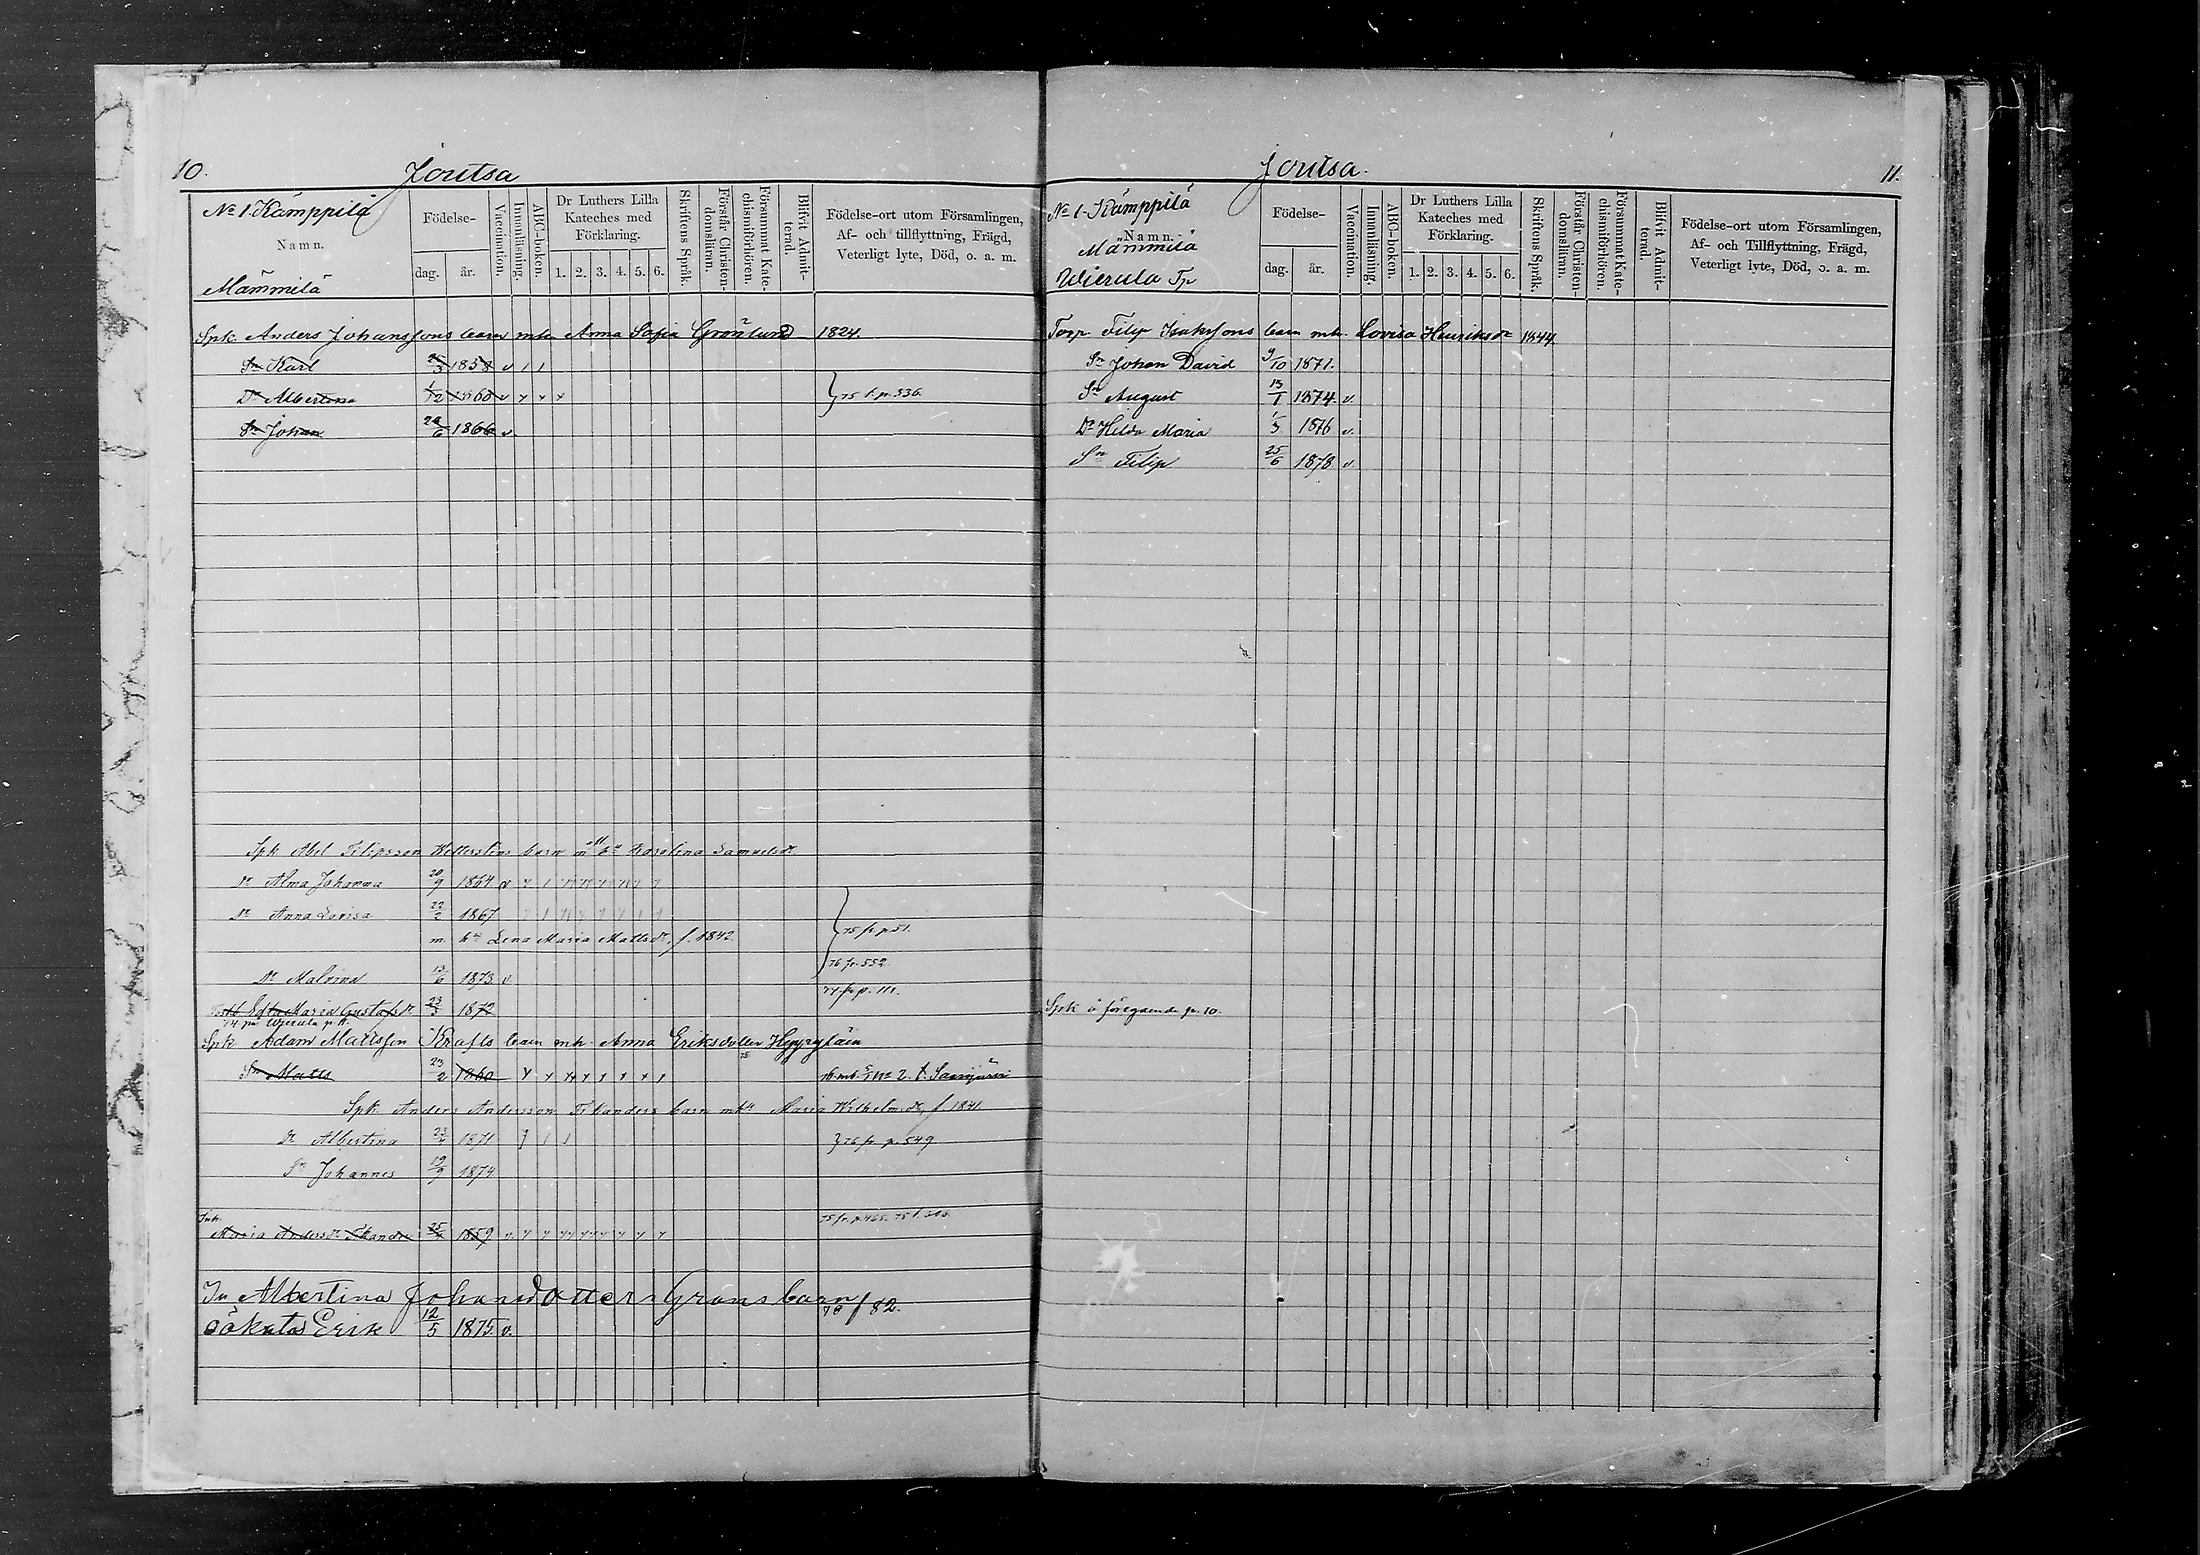 10. Joutsa
No 1 Kämppilä
Namn.
Mämmilä
Födelse-
dag. år.
Vaccination.
Innanläsning.
ABC-boken.
Dr Luthers Lilla Kateches med Förklaring.
1. 2. 3. 4. 5. 6.
Skriftens Språk.
Förstår Christendomsläran.
Försummat Katechismiförhören.
Blifvit Admitterad.
Födelse-ort utom Församlingen, Af- och tillflyttning, Frägd, Veterligt lyte, Död, o. a. m.
Spk. Anders Johanssons barn mh Anna Sofia Grönlund 1824.
Sn Karl 1858 v
Dr Albertina 1/12 1860 v } 75 t. p. 536.
Sn Johan 1866 v.
Spk Abel Filipsson Wetterstens barn m Karolina Samuelsdr
Dr Alma Johanna 20/9 1864 v
Dr Anna Lovisa 22/2 1867 } 75 fr. p. 51.
m. hu Lena Maria Mattsdr, f. 1842.
76 fr. 552
Dr Malvina 13/6 1873 v
Edla Maria Gustafsdr 23/3 1872 fr p. 111.
Spk Adam Matsson Krafts barn mh. Anna Eriksdotter Hyyryläin
Sn Matts 23/2 1860 mb. No 2. t. Saarijärvi
Spk. Anders Andersson Tikanders barn mh Maria Wilhelmsdr, f. 1841.
Dr Albertina 1871 } 76 fr. p. 549
Sn Johannes 19/9 1874
Inh.
Maria Andersdr 1859 v. 75 fr. p. 465.
In Albertina Johansdotters Gröns barn
oäkta Erik 12/5 1875 v. 78 f 82.
Joutsa. 11.
No 1. Kämppilä
Namn.
Mämmilä
Wierula Tp
Födelse-
dag. år.
Vaccination.
Innanläsning.
ABC-boken.
Dr Luthers Lilla Kateches med Förklaring.
1. 2. 3. 4. 5. 6.
Skriftens Språk.
Förstår Christendomsläran.
Försummat Katechismiförhören.
Blifvit Admitterad.
Födelse-ort utom Församlingen, Af- och Tillflyttning, Frägd, Veterligt lyte, Död, o. a. m.
Torp. Filip Isakssons barn mh. Lovisa Henriksdr 1844
Sn Johan David 9/10 1871.
Sn August 13/1 1874. v.
Dr Hilda Maria 1/3 1876 v.
Sn Filip 25/6 1878 v.
Spk å föregående p. 10.